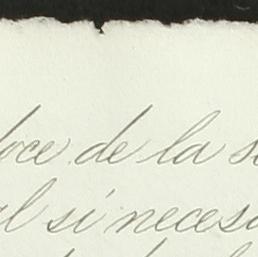 oce de la s
al si necesa